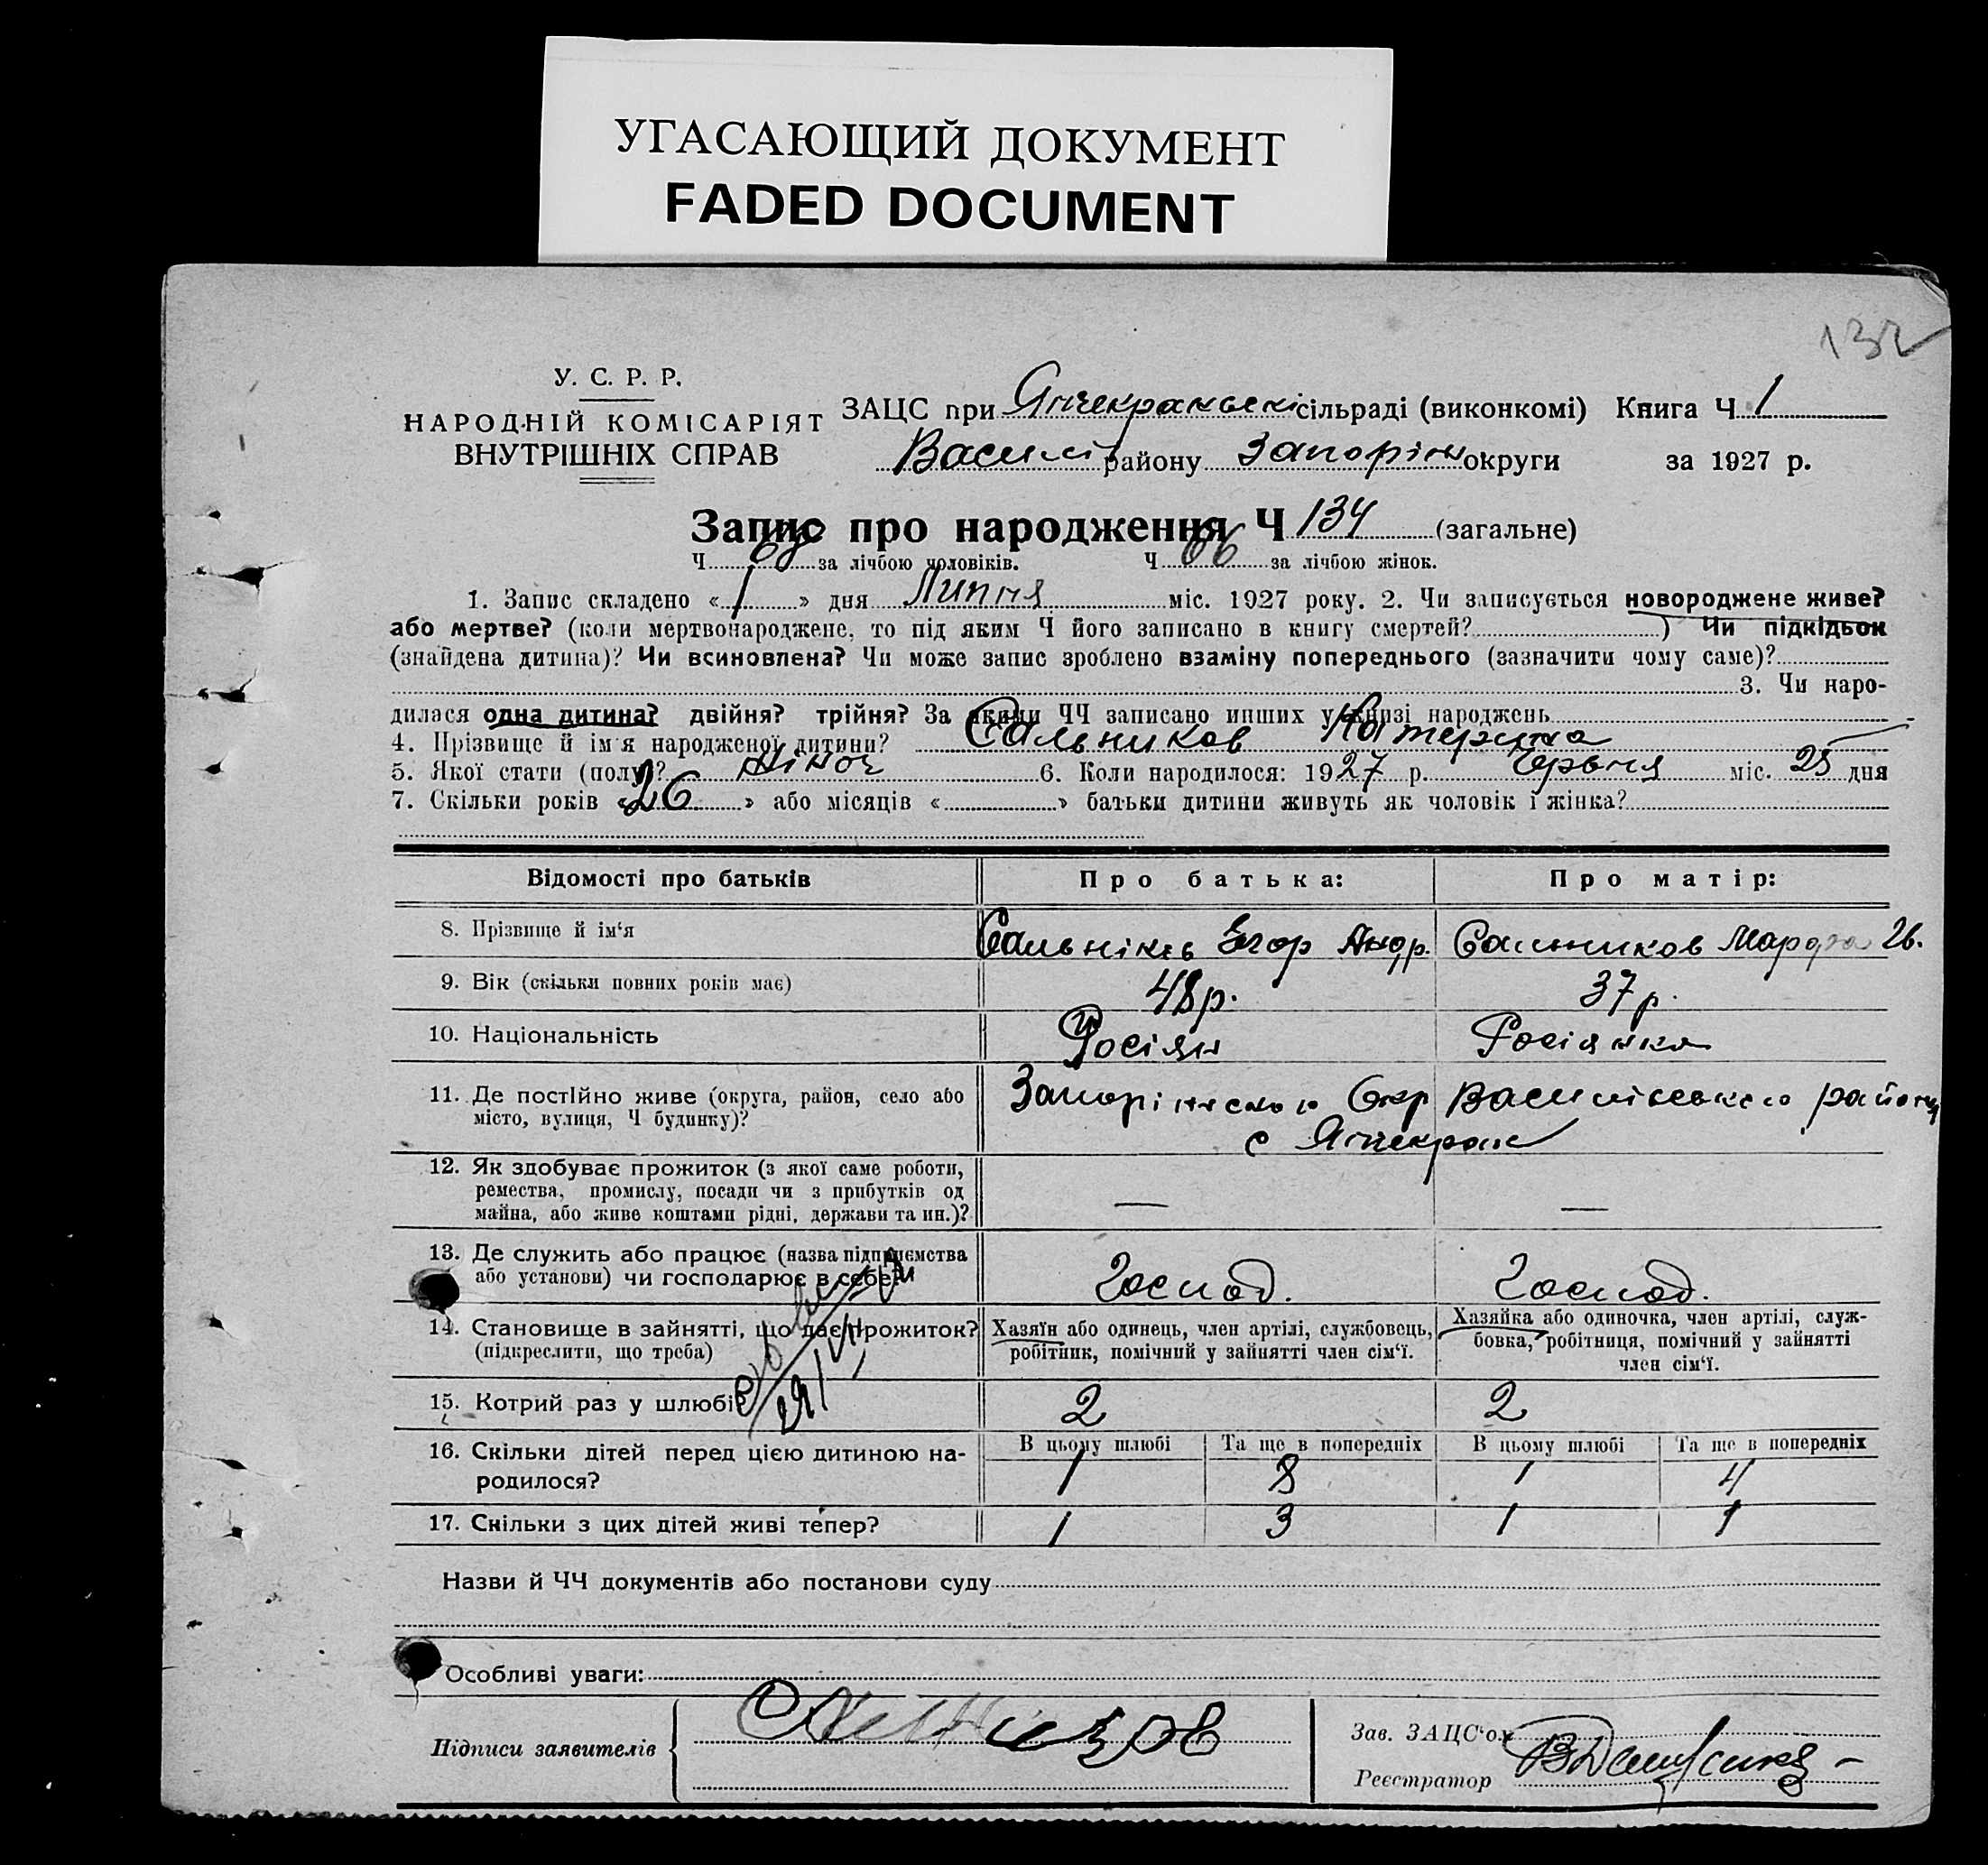 УГАСАЮЩИЙ ДОКУМЕНТ
FADED DOCUMENT
132
У. С. Р. Р.
НАРОДНІЙ КОМІСАРІЯТ
ВНУТРІШНІХ СПРАВ
ЗАЦС при Янчекракськ сільраді (виконкомі) Книга Ч 1
Васил району Запоріж округи за 1927 р.
Запис про народження Ч 134 (загальне)
Ч 68 за лічбою чоловіків. Ч 66 за лічбою жінок.
1. Запис складено « 1 » дня Липня міс. 1927 року. 2. Чи записується новороджене живе?
або мертве? (коли мертвонароджене, то під яким Ч його записано в книгу смертей? ) Чи підкідьок
(знайдена дитина)? Чи всиновлена? Чи може запис зроблено взаміну попереднього (зазначити чому саме)?
3. Чи наро-
дилася одна дитина? двійня? трійня? За якими ЧЧ записано инших у книзі народжень
4. Прізвище й ім'я народженої дитини? Сальников Катерина
5. Якої стати (полу)? жіноч 6. Коли народилося: 1927 р. Червня міс. 25 дня
7. Скільки років « 26 » або місяців « » батьки дитини живуть як чоловік і жінка?
Відомості про батьків
Про батька:
Про матір:
8. Прізвище й ім'я Сальніков Егор Андр. Сальников Марфа
9. Вік (скільки повних років має) 48 р. 37 р.
10. Національність Росіян Росіянка
11. Де постійно живе (округа, район, село або
місто, вулиця, Ч будинку)?
Запоріжською Окр Василівського району
с Янчекрак
12. Як здобуває прожиток (з якої саме роботи,
ремества, промислу, посади чи з прибутків од
майна, або живе коштами рідні, держави та ин.)?
— —
13. Де служить або працює (назва підприємства
або установи) чи господарює в себе?
Господ. Господ.
14. Становище в зайнятті, що дає прожиток?
(підкреслити, що треба)
Хазяїн або одинець, член артілі, службовець,
робітник, помічний у зайнятті член сім'ї.
Хазяйка або одиночка, член артілі, служ-
бовка, робітниця, помічний у зайнятті
член сім'ї.
15. Котрий раз у шлюбі 2 2
16. Скільки дітей перед цією дитиною на-
родилося?
В цьому шлюбі Та ще в попередніх В цьому шлюбі Та ще в попередніх
1 8 1 4
17. Скільки з цих дітей живі тепер? 1 3 1 1
Назви й ЧЧ документів або постанови суду
Особливі уваги:
Підписи заявителів
Зав. ЗАЦС'ом
Реєстратор